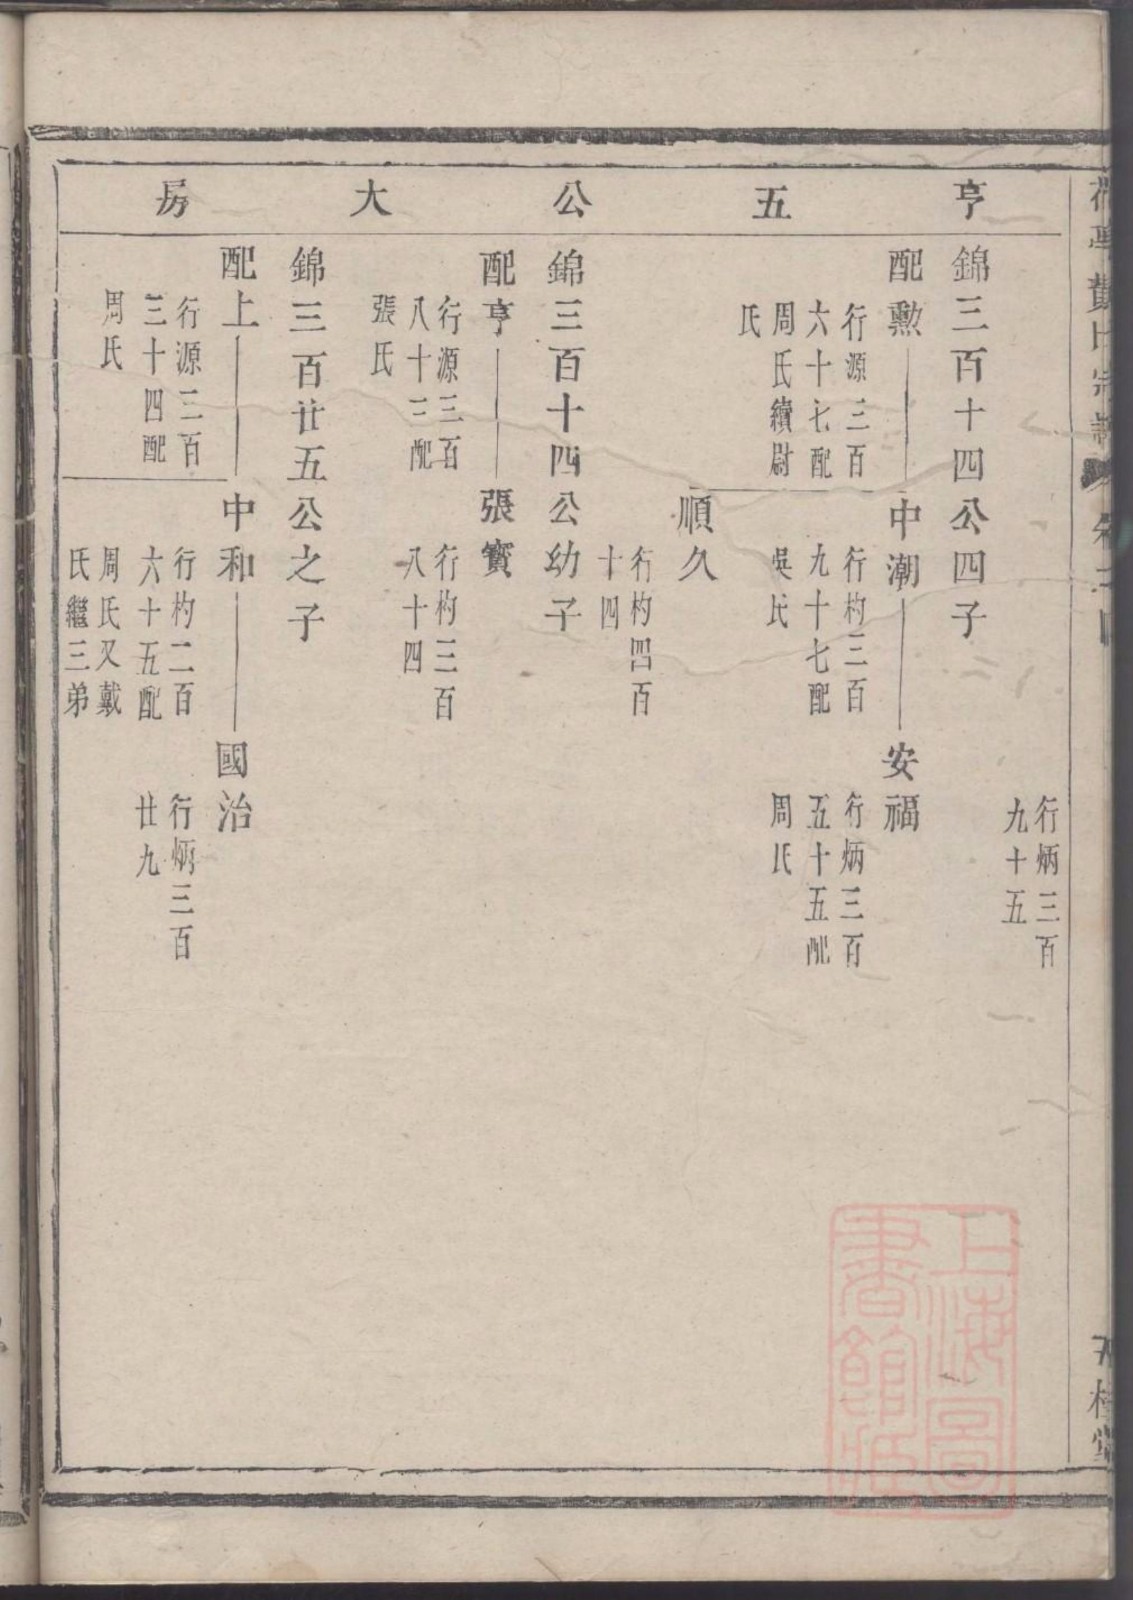 亨五公大房
行炳三百
九十五
錦三百十四公四子
配勲
中潮
安福
行源三百
六十七配
周氏續尉
氏
行杓三百
九十七配
吳氏
行炳三百
五十五配
周氏
順久
行杓四百
十四
錦三百十四公幼子
配亨
張寳
行源三百
八十三配
張氏
行杓三百
八十四
錦三百廿五公之子
配上
中和
國治
行源三百
三十四配
周氏
行杓二百
六十五配
周氏又戴
氏繼三弟
行炳三百
廿九
上海圖
書館藏